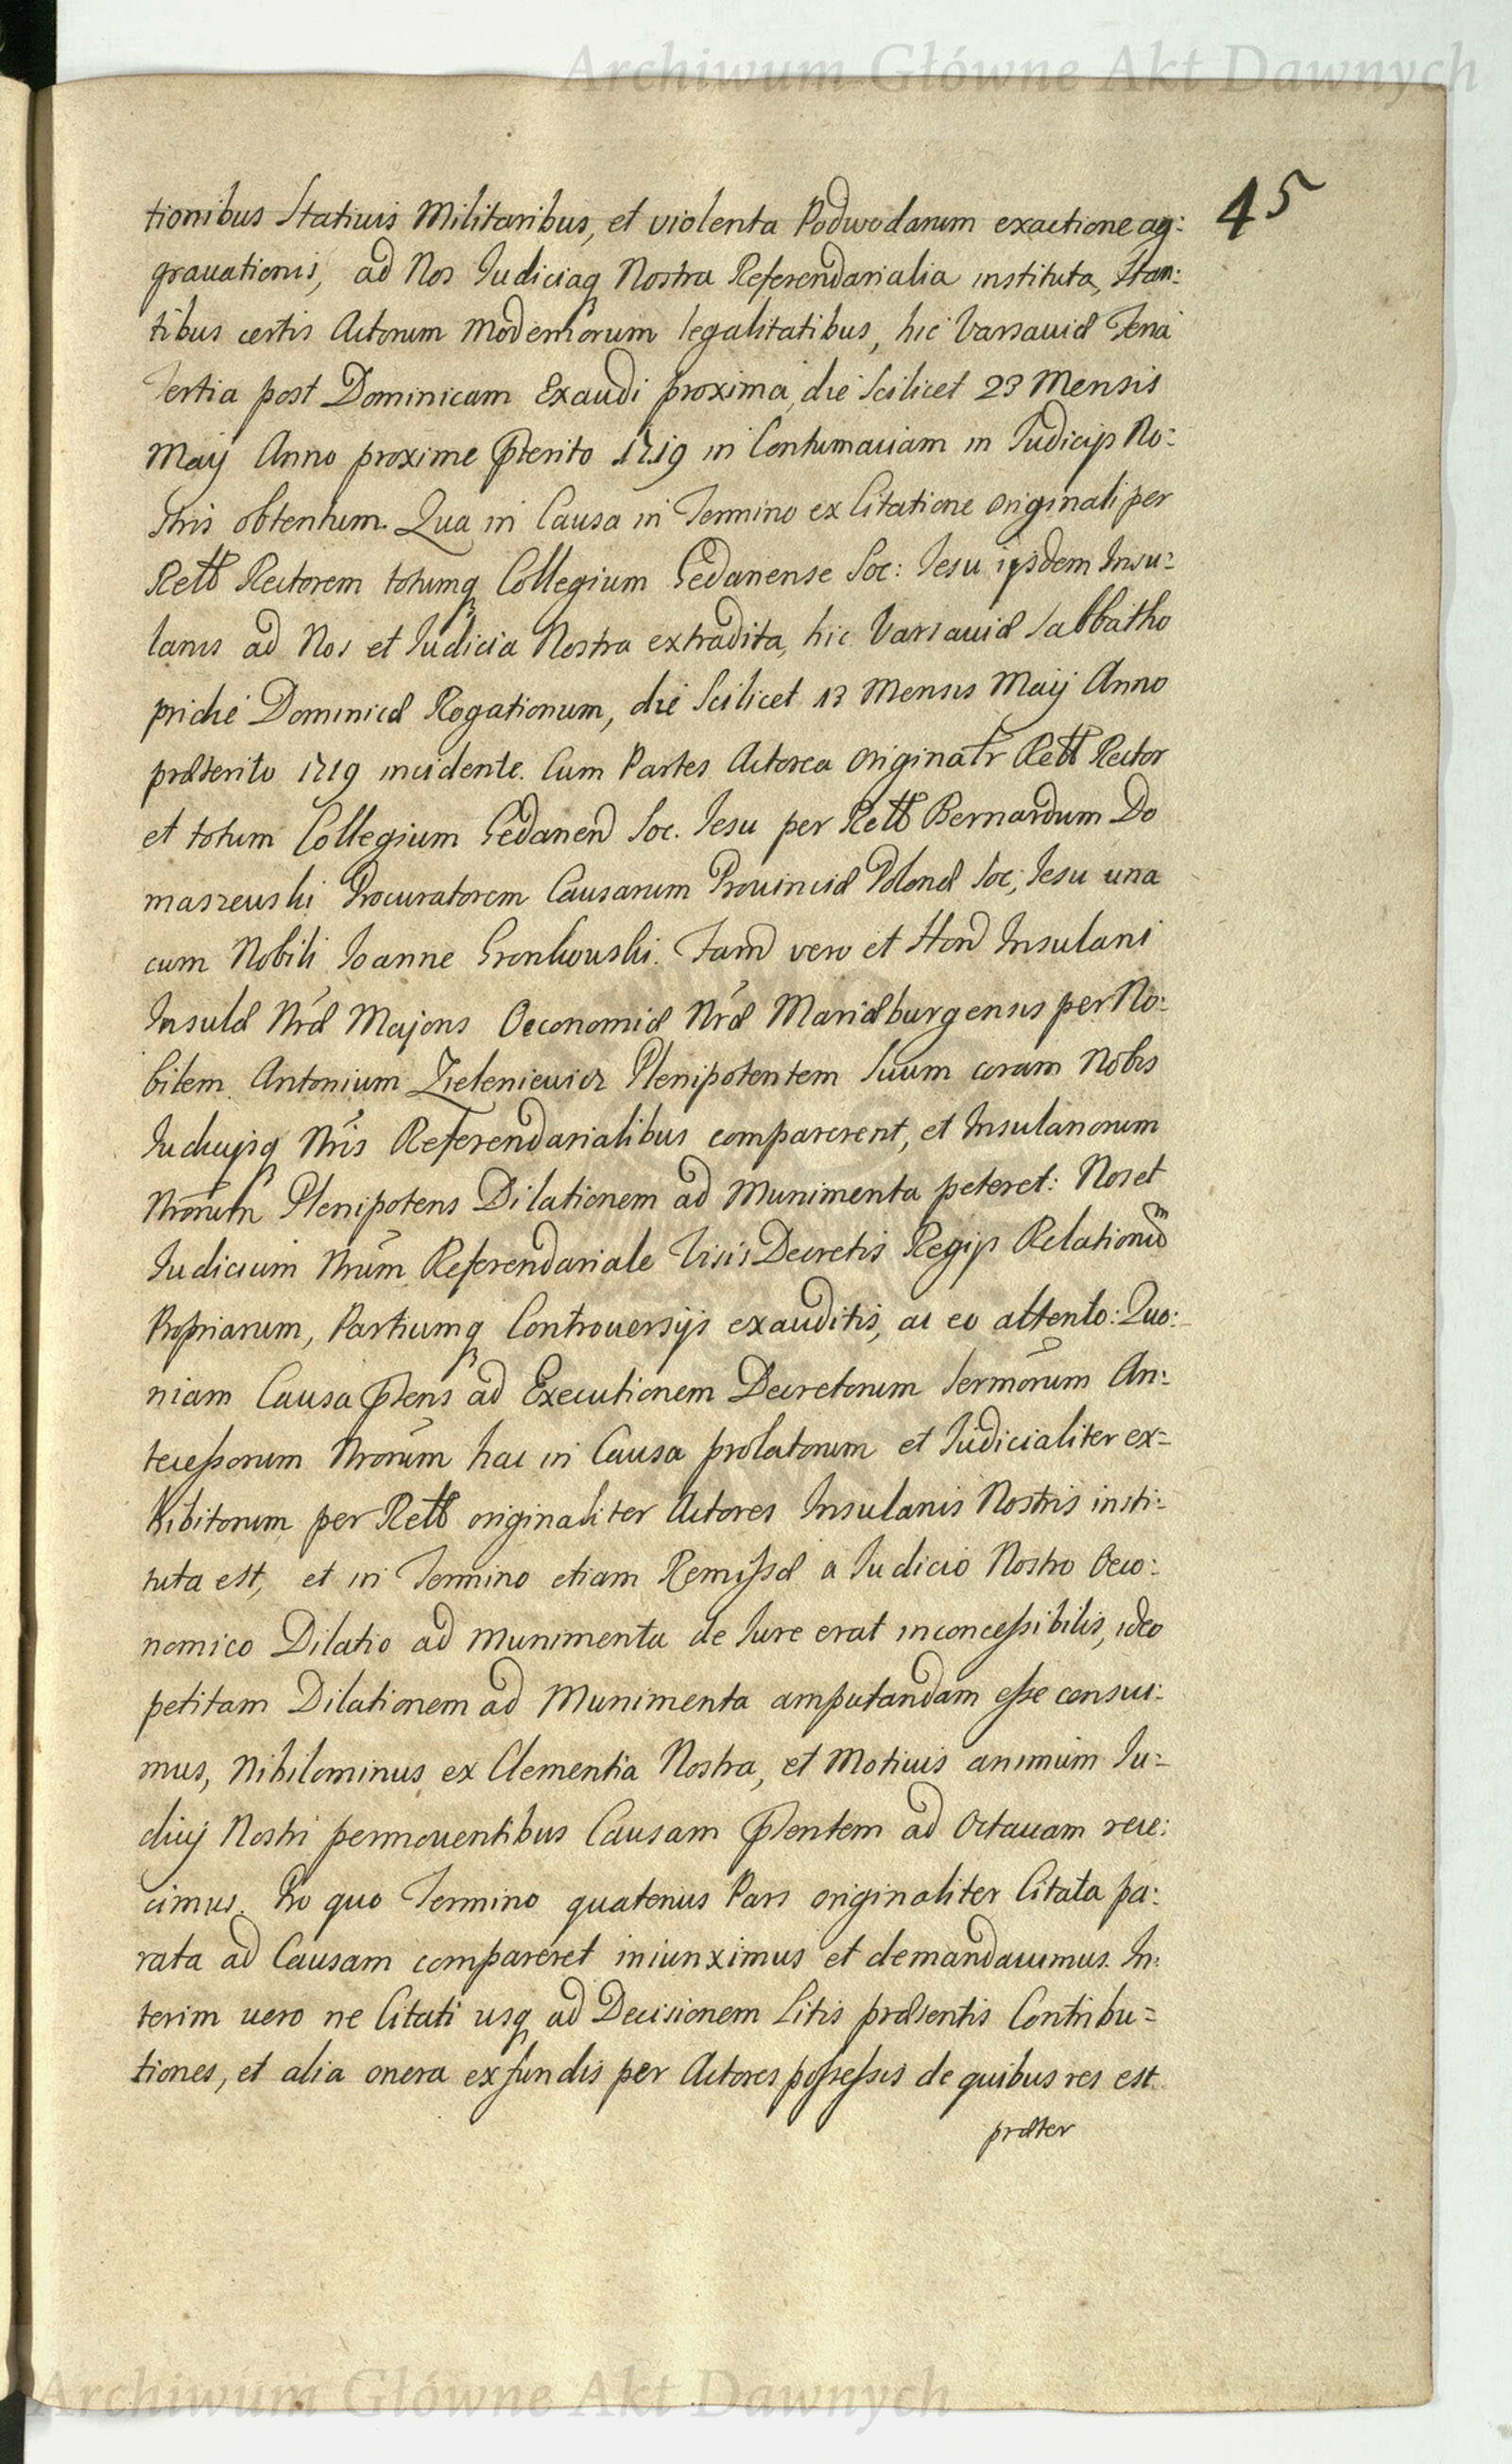 Archiwum Główne Akt Dawnych
45
tionibus Stativis Militaribus, et violenta Podwodarum exactione ag:
gravationis, ad Nos Iudiciaq Nostra Referendarialia instituta, Stan:
tibus certis Actorum Modernorum legalitatibus, hic Varsaviæ Feria
Tertia post Dominicam Exaudi proxima, die Scilicet 23 Mensis
Maij Anno proxime Pterito 1719 in Contumaciam in Judicijs No:
stris obtentum. Qua in Causa in Termino ex Citatione originali per
Rełł Rectorem totumq Collegium Gedanense Soc: Iesu ijsdem Insu:
lanis ad Nos et Iudicia Nostra extradita, hic Varsaviæ Sabbatho
pridie Dominicæ Rogationum, die Scilicet 13 Mensis Maij Anno
præterito 1719 incidente. Cum Partes Actorea originałr Rełł Rector
et totum Collegium Gedanen Soc. Iesu per Rełł Bernardum Do
maszewski Procuratorem Causarum Provinciæ Polonæ Soc, Iesu una
cum Nobili Ioanne Gronkowski. Tam vero et Hon Insulani
Insulæ Nræ Majoris Oeconomiæ Nræ Mariæburgensis per No:
bilem Antonium Zieleniewicz Plenipotentem Suum coram Nobis
Iudicijsq Nris Referendarialibus comparerent, et Insulanorum
Nrorum Plenipotens Dilationem ad Munimenta peteret: Nos et
Iudicium Nrum Referendariale Visis Decretis Regijs Relationū
Propriarum, Partiumq Controversijs exauditis, ac eo attento: Quo:
niam Causa Ptens ad Executionem Decretorum Sermorum An:
tecessorum Nrorum hac in Causa prolatorum et Iudicialiter ex=
hibitorum per Rełł originaliter Actores Insulanis Nostris insti:
tuta est, et in Termino etiam Remissæ a Iudicio Nostro Oeco:
nomico Dilatio ad munimenta de Iure erat inconcessibilis, ideo
petitam Dilationem ad Munimenta amputandam esse censui:
mus, Nihilominus ex Clementia Nostra, et Motivis animum Iu=
dicij Nostri permoventibus Causam Ptentem ad Octavam reie:
cimus. Pro quo Termino quatenus Pars originaliter Citata pa:
rata ad Causam compareret iniunximus et demandavimus. In:
terim vero ne Citati usq ad Decisionem Litis præsentis Contribu=
tiones, et alia onera ex fundis per Actores possessis de quibus res est
præter
Archiwum Główne Akt Dawnych